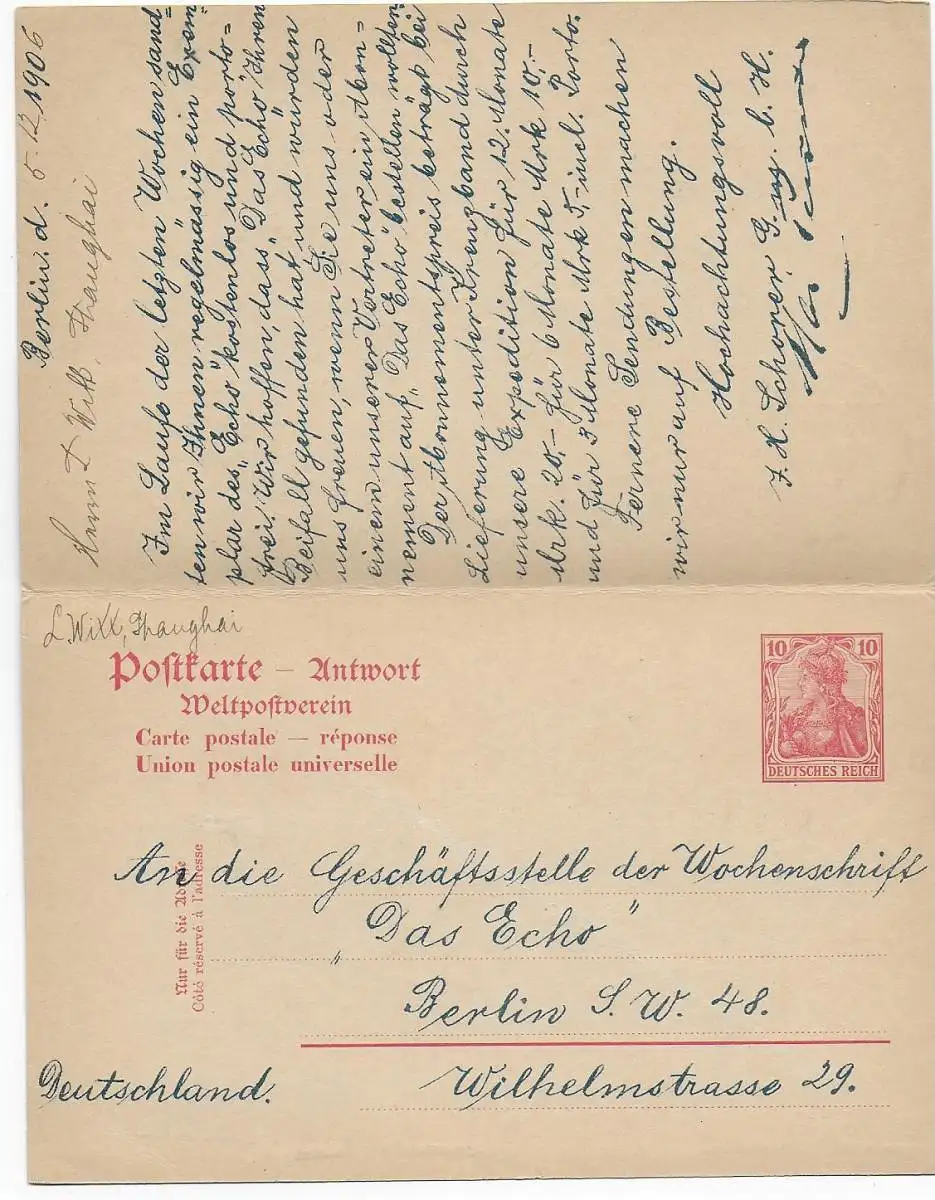 Berlin. d. 5. 12. 1906
Herrn L Witt, Shanghai
Im Laufe der letzten Wochen sand-
ten wir Ihnen regelmässig ein Exem-
plar des „Echo" kostenlos und porto-
frei. Wir hoffen, dass „Das Echo" Ihren
Beifall gefunden hat und würden
uns freuen, wenn Sie uns oder
einem unserer Vertreter ein Abon-
nement auf „Das Echo" bestellen wollten
Der Abonnementspreis beträgt bei
Lieferung unter Kreuzband durch
unsere Expedition für 12. Monate
Mrk. 20.- für 6 Monate Mrk 10.-
und für 3 Monate Mrk 5,- incl. Porto.
Fernere Sendungen machen
wir nur auf Bestellung.
Hochachtungsvoll
J. H. Schorer G. m. b. H.
L. Witt, Shanghai
Postkarte — Antwort
Weltpostverein
Carte postale — réponse
Union postale universelle
10 10
DEUTSCHES REICH
Nur für die Adresse
Côté réservé à l'adresse
An die Geschäftsstelle der Wochenschrift
„Das Echo"
Berlin S. W. 48.
Deutschland. Wilhelmstrasse 29.